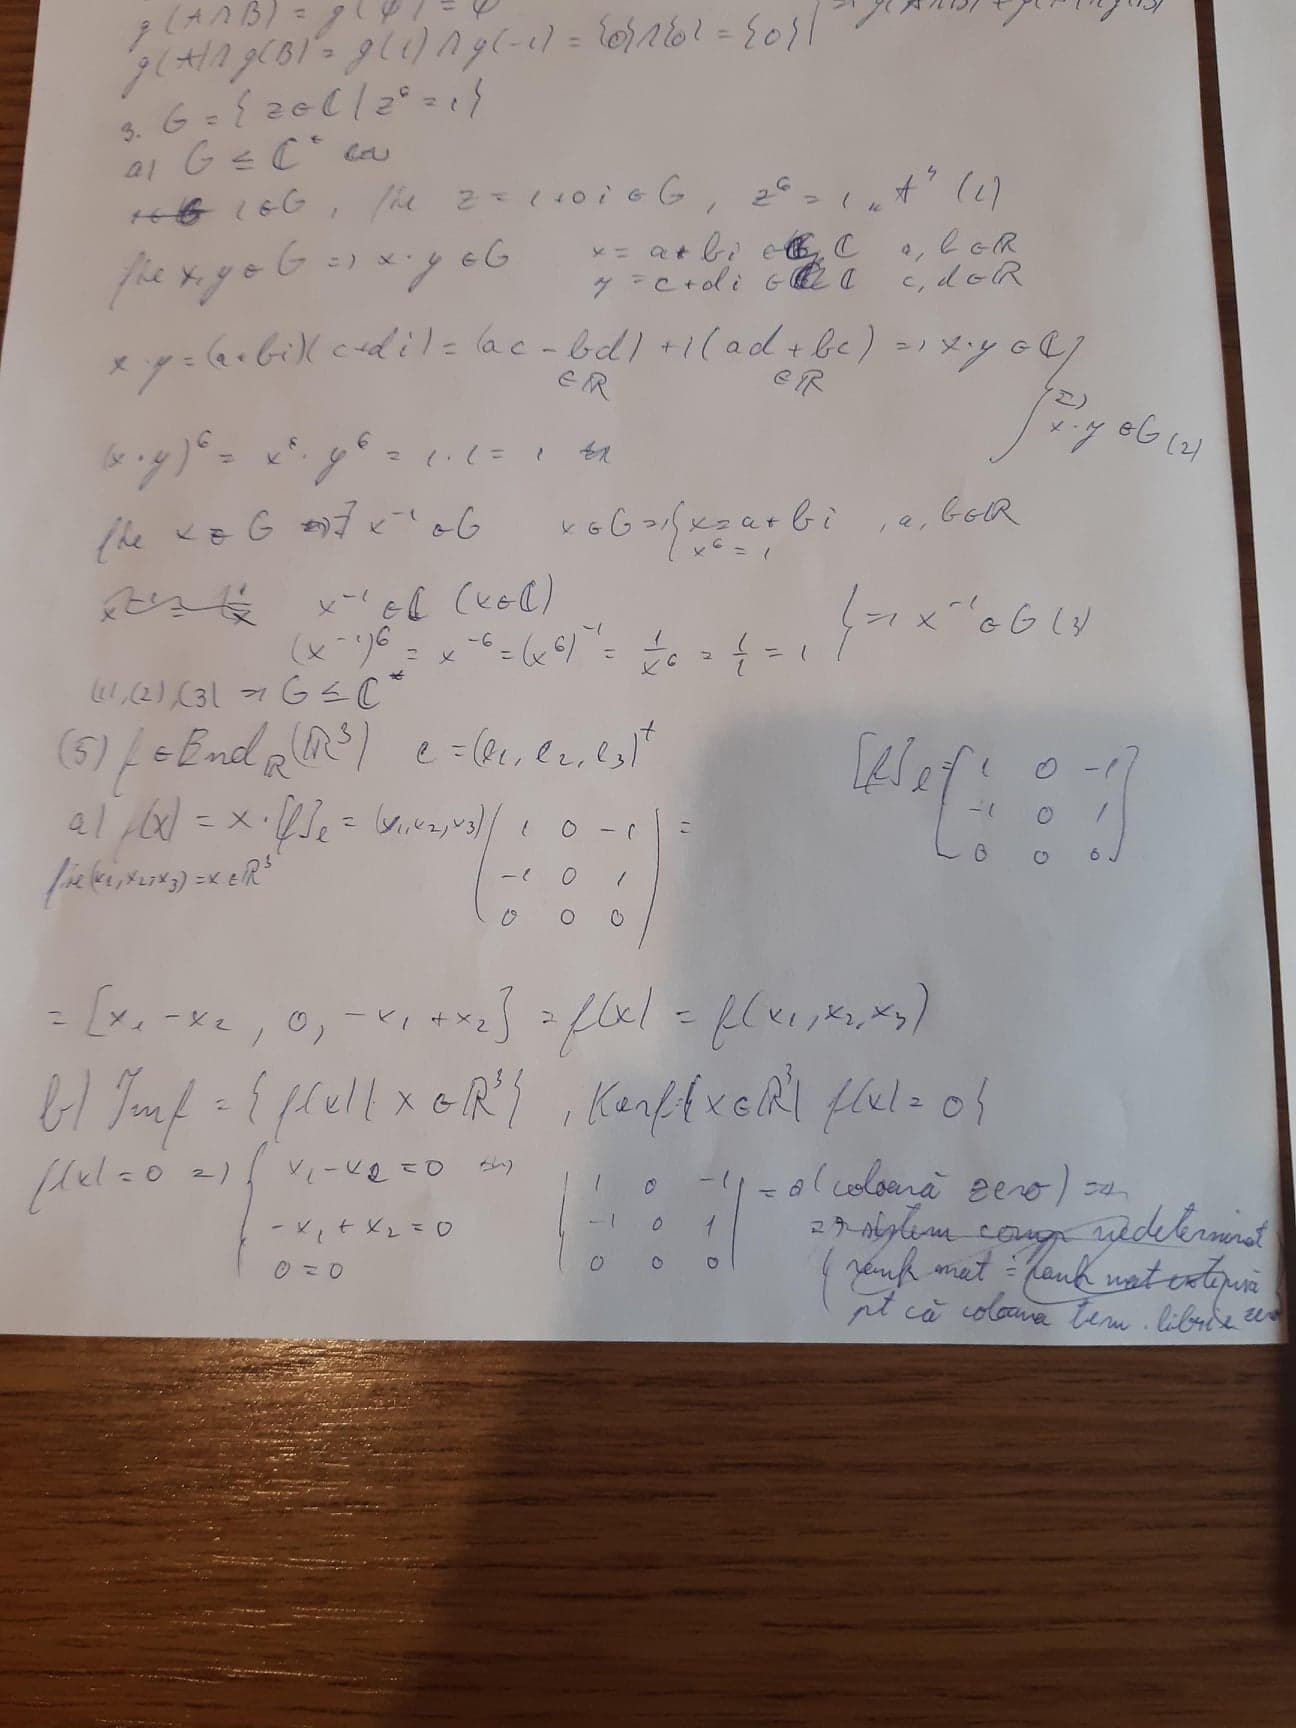 g(A∩B) = g(∅) = ∅
g(A)∩g(B) = g(1)∩g(-1) = {0}∩{0} = {0}
3. G = {z∈ℂ | z⁶ = 1}
a) G ≤ ℂ*
1∈G, fie z = 1+0i ∈ G, z⁶ = 1 „A" (1)
fie x,y∈G => x·y∈G x = a+bi ∈ ℂ a, b∈ℝ
y = c+di ∈ ℂ c, d∈ℝ
x·y = (a+bi)(c+di) = (ac-bd) + i(ad+bc) => x·y∈ℂ
∈ℝ ∈ℝ
=> x·y∈G (2)
(x·y)⁶ = x⁶·y⁶ = 1·1 = 1
fie x∈G => ∃ x⁻¹∈G x∈G => { x = a+bi , a, b∈ℝ
x⁶ = 1
x⁻¹∈ℂ (x∈ℂ)
(x⁻¹)⁶ = x⁻⁶ = (x⁶)⁻¹ = 1/x⁶ = 1/1 = 1 } => x⁻¹∈G (3)
(1),(2),(3) => G ≤ ℂ*
(5) f∈End_ℝ(ℝ³) e = (e₁, e₂, e₃)ᵗ [f]ₑ = [ 1 0 -1
-1 0 1
0 0 0 ]
a) f(x) = x·[f]ₑ = (x₁,x₂,x₃) ( 1 0 -1 ) =
fie (x₁,x₂,x₃) = x∈ℝ³ -1 0 1
0 0 0
= [x₁-x₂, 0, -x₁+x₂] = f(x) = f(x₁,x₂,x₃)
b) Imf = {f(x) | x∈ℝ³}, Kerf={x∈ℝ³ | f(x) = 0}
f(x) = 0 => { x₁-x₂ = 0 | 1 0 -1 | = 0 (coloană zero) =>
-x₁+x₂ = 0 | -1 0 1 | => sistem comp nedeterminat
0 = 0 | 0 0 0 | (rank mat = rank mat extinsă
pt că coloana term. liberi e zero)